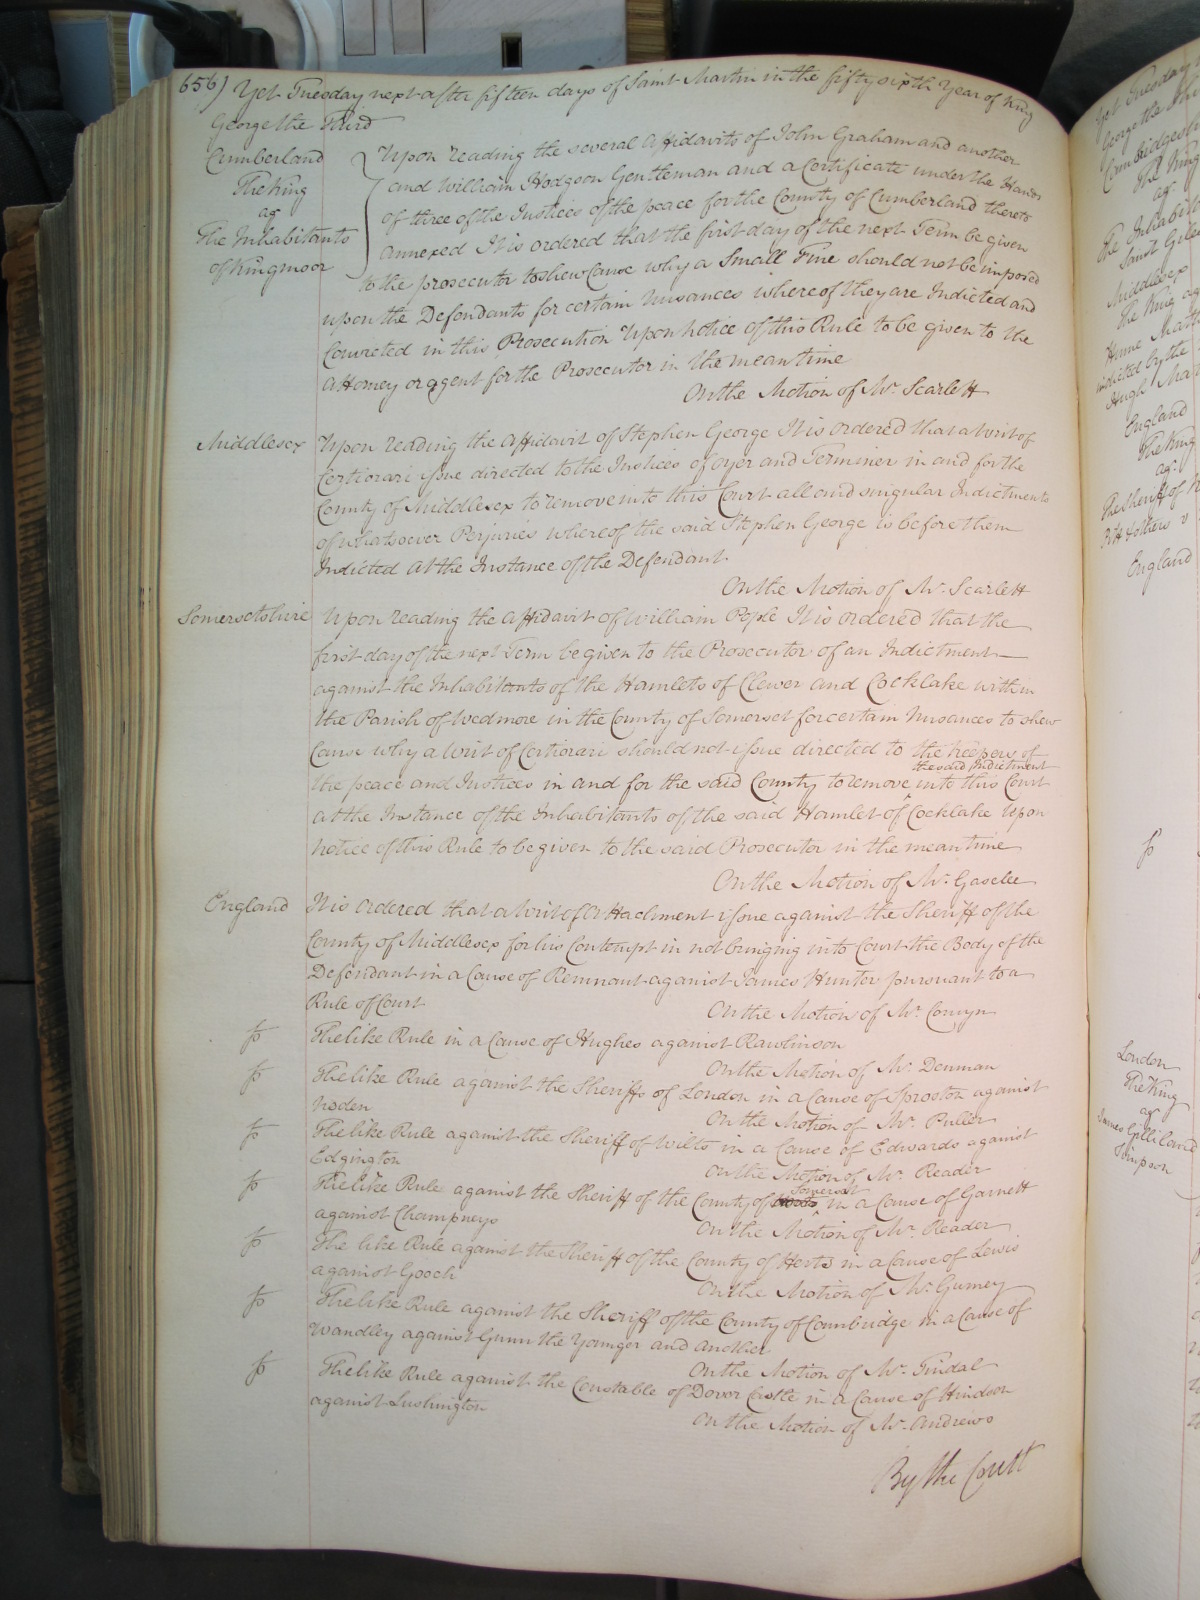 656) Yet Tuesday next after fifteen days of Saint Martin in the fifty sixth Year of King
George the Third
Cumberland
The King
agt
The Inhabitants
of Kingmoor
Upon reading the several Affidavits of John Graham and another
and William Hodgson Gentleman and a Certificate under the Hands
of three of the Justices of the peace for the County of Cumberland thereto
annexed It is ordered that the first day of the next Term be given
to the prosecutor to shew Cause why a Small Fine should not be imposed
upon the Defendants for certain Nusances whereof they are Indicted and
Convicted in this Prosecution Upon notice of this Rule to be given to the
Attorney or agent for the Prosecutor in the mean time
On the Motion of Mr. Scarlett
Middlesex Upon reading the Affidavit of Stephen George It is ordered that a Writ of
Certiorari issue directed to the Justices of oyer and Terminer in and for the
County of Middlesex to remove into this Court all and singular Indictments
of whatsoever Perjuries whereof the said Stephen George is before them
Indicted At the Instance of the Defendant.
On the Motion of Mr. Scarlett
Somersetshire Upon reading the Affidavit of William Pople It is ordered that the
first day of the next Term be given to the Prosecutor of an Indictment
against the Inhabitants of the Hamlets of Clewer and Cocklake within
the Parish of Wedmore in the County of Somerset for certain Nusances to shew
Cause why a Writ of Certiorari should not issue directed to the Keepers of
the said Indictment
the peace and Justices in and for the said County to remove into this Court
at the Instance of the Inhabitants of the said Hamlet of Cocklake Upon
notice of this Rule to be given to the said Prosecutor in the mean time
On the Motion of Mr. Gaselee
England It is ordered that a Writ of Attachment issue against the Sheriff of the
County of Middlesex for his Contempt in not bringing into Court the Body of the
Defendant in a Cause of Remnant against James Hunter pursuant to a
Rule of Court On the Motion of Mr. Comyn
The like Rule in a Cause of Hughes against Rawlinson
On the Motion of Mr. Denman
The like Rule against the Sheriffs of London in a Cause of Sproston against
Noden On the Motion of Mr. Puller
The like Rule against the Sheriff of Wilts in a Cause of Edwards against
Edgington On the Motion of Mr. Reader
Somerset
The like Rule against the Sheriff of the County of in a Cause of Garnett
against Champneys On the Motion of Mr. Reader
The like Rule against the Sheriff of the County of Herts in a Cause of Lewis
against Gooch On the Motion of Mr. Gurney
The like Rule against the Sheriff of the County of Cambridge in a Cause of
Wandley against Gunn the Younger and another
On the Motion of Mr. Tindal
The like Rule against the Constable of Dover Castle in a Cause of Hindson
against Lushington On the Motion of Mr. Andrews
By the Court
Yet Tuesday
George the
Cambridgeshire
The King
agt
The Inhabitants
Saint Giles
Middlesex
The King agt
Hugh
England
The King
agt
The Sheriff of
England
London
The King
agt
James Gilliland
Simpson